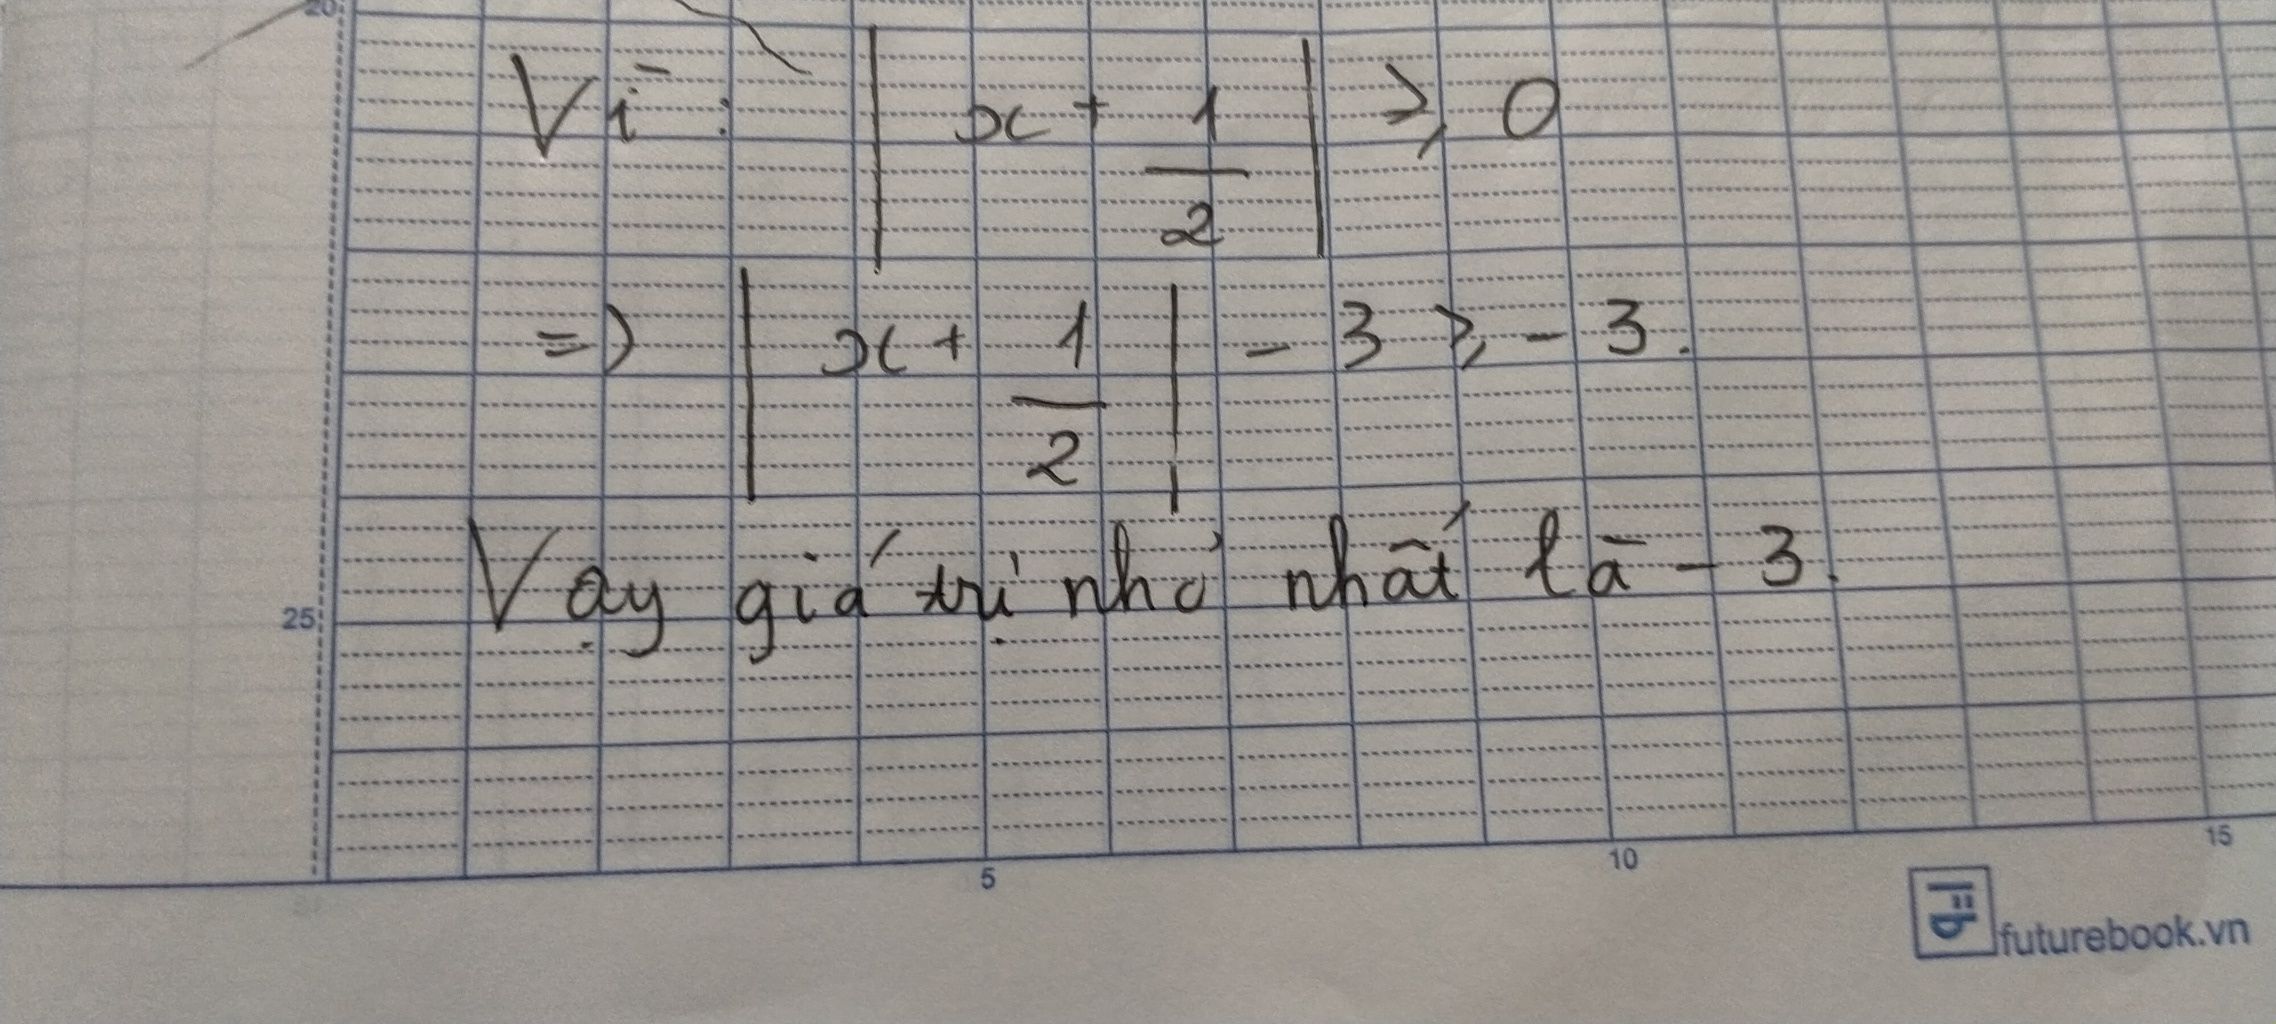 20
Vì: | x + 1/2 | ⩾ 0
=> | x + 1/2 | - 3 ⩾ - 3.
25 Vậy giá trị nhỏ nhất là - 3.
5 10 15
futurebook.vn